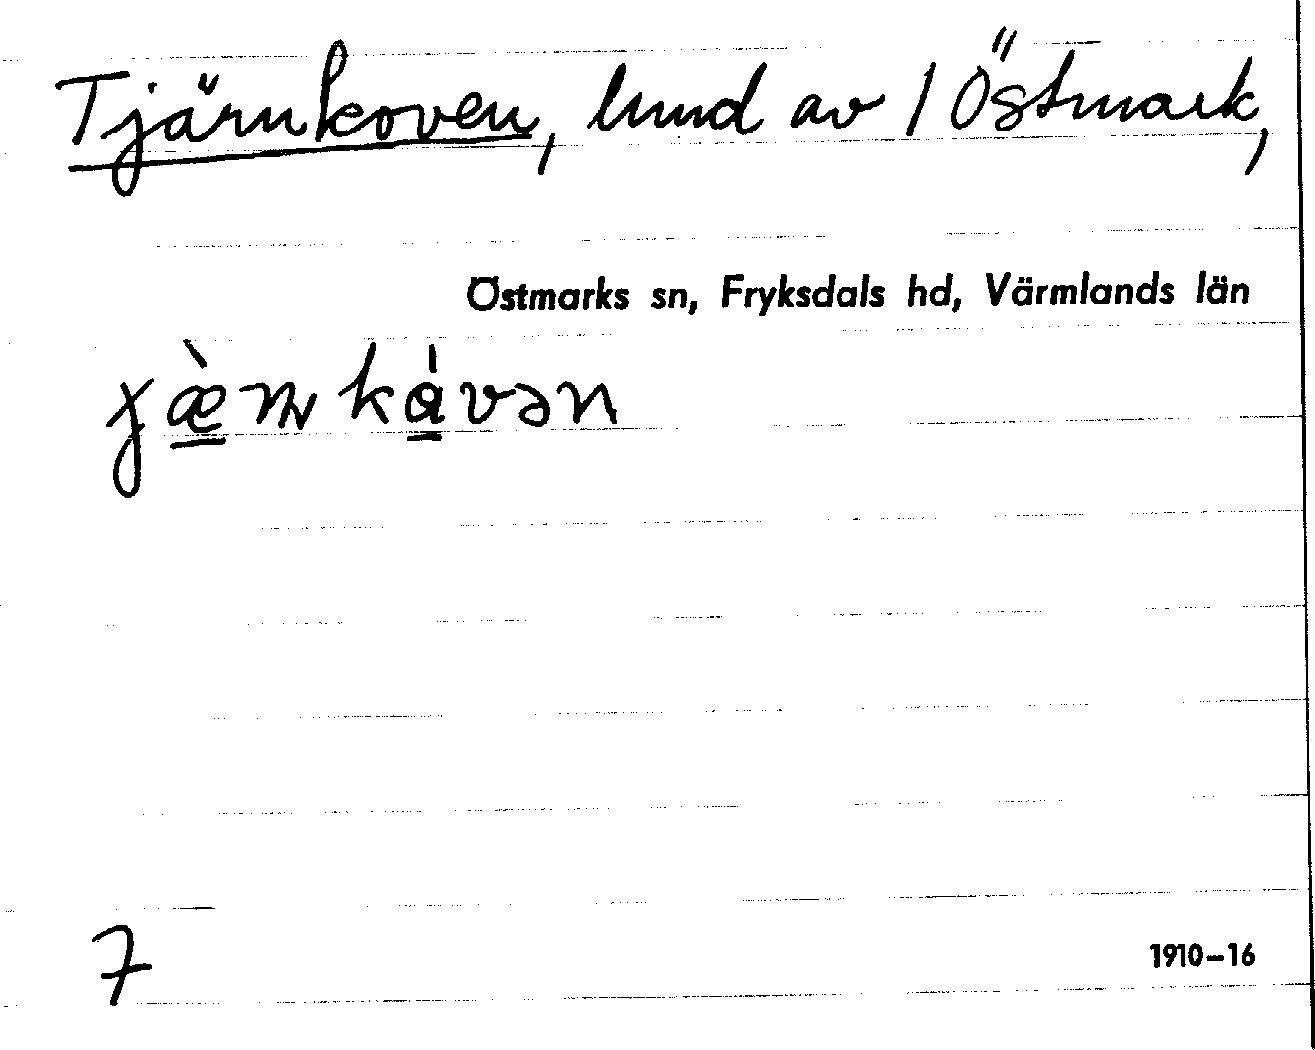 Tjärnkoven, lund av 1 Östmark,
Östmarks sn, Fryksdals hd, Värmlands län
7
1910-16